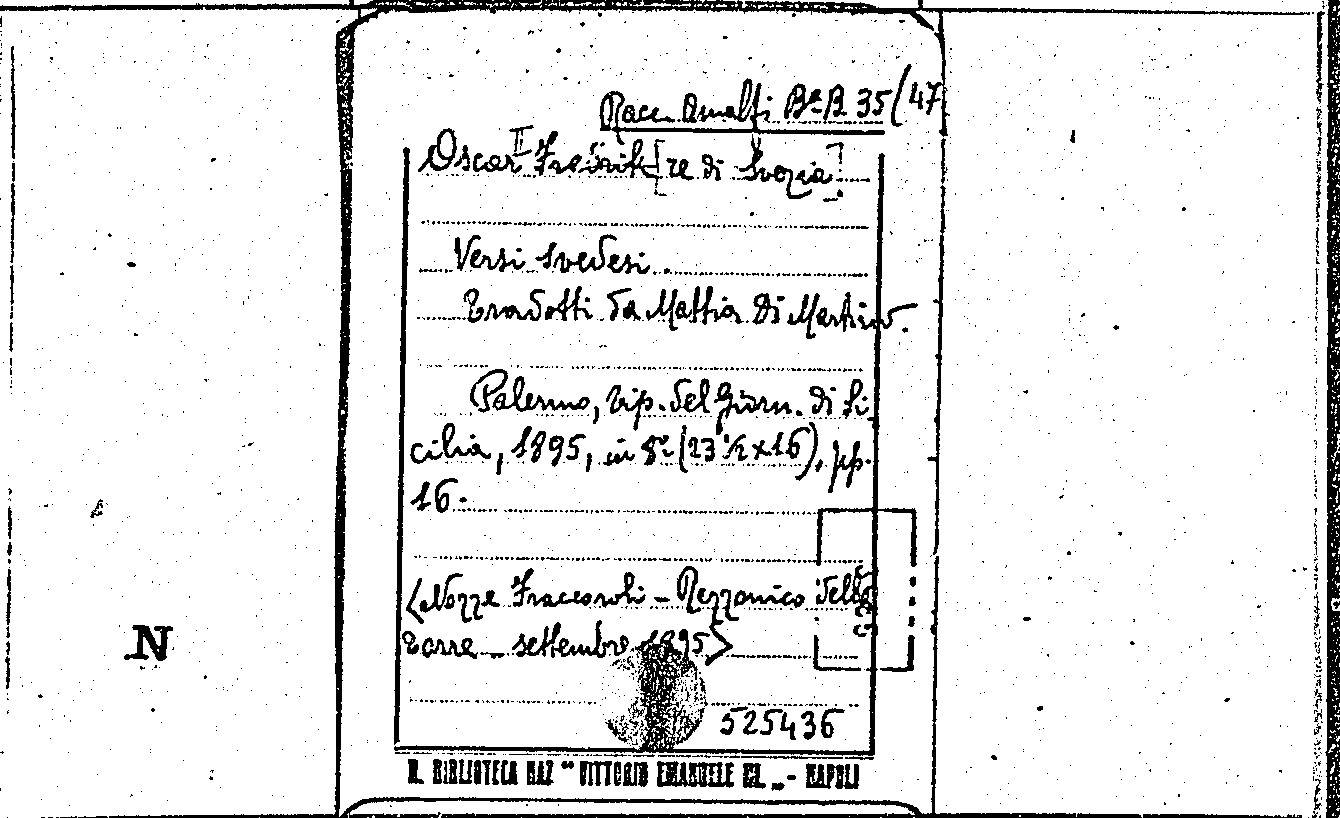 Racc. Amalfi Bª B. 35/47
Oscar II Fredrik [re di Svezia]
Versi svedesi.
Tradotti da Mattia Di Martino.
Palermo, tip. del Giorn. di Si
cilia, 1895, in 8º (23 ½ x 16), pp.
16.
<Nozze Fraccaroli - Rezzonico della
Torre - settembre 1895>
525436
R. BIBLIOTECA NAZ "VITTORIO EMANUELE III„ - NAPOLI
N